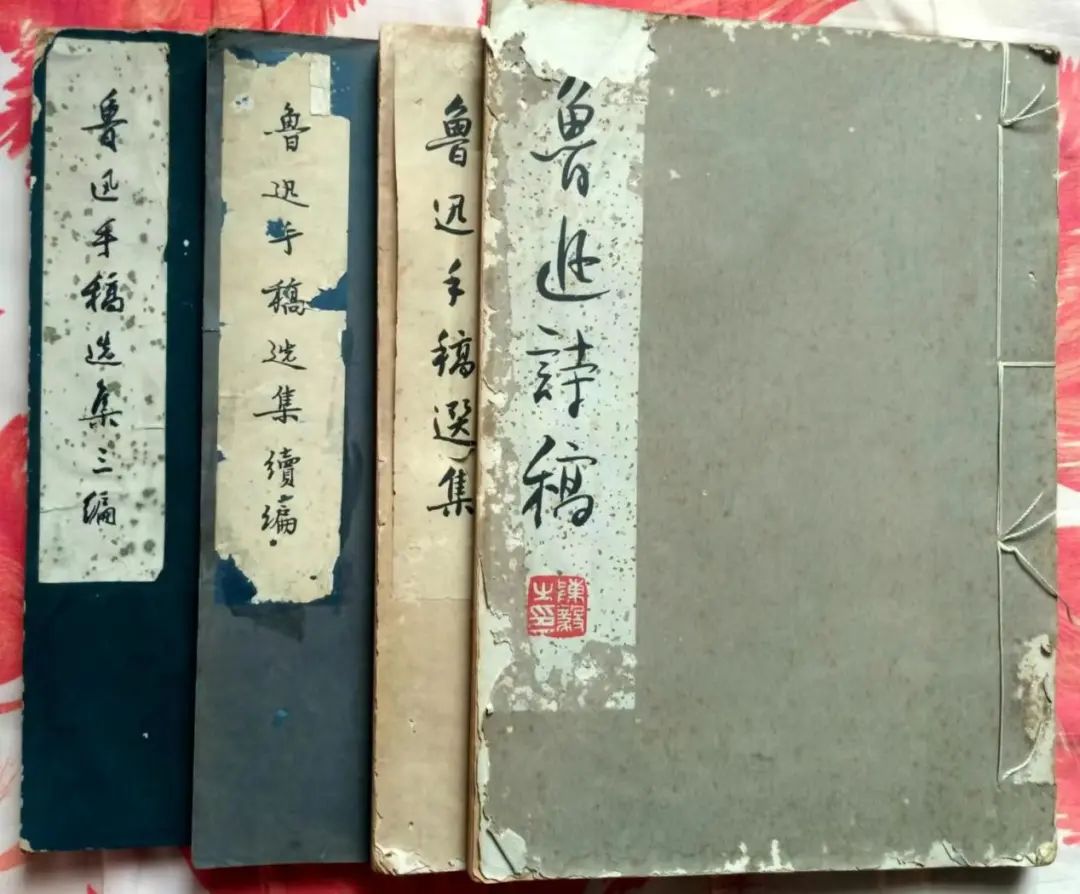 魯迅詩稿
陳毅之印
魯迅手稿選集
魯迅手稿选集續編
魯迅手稿选集三編